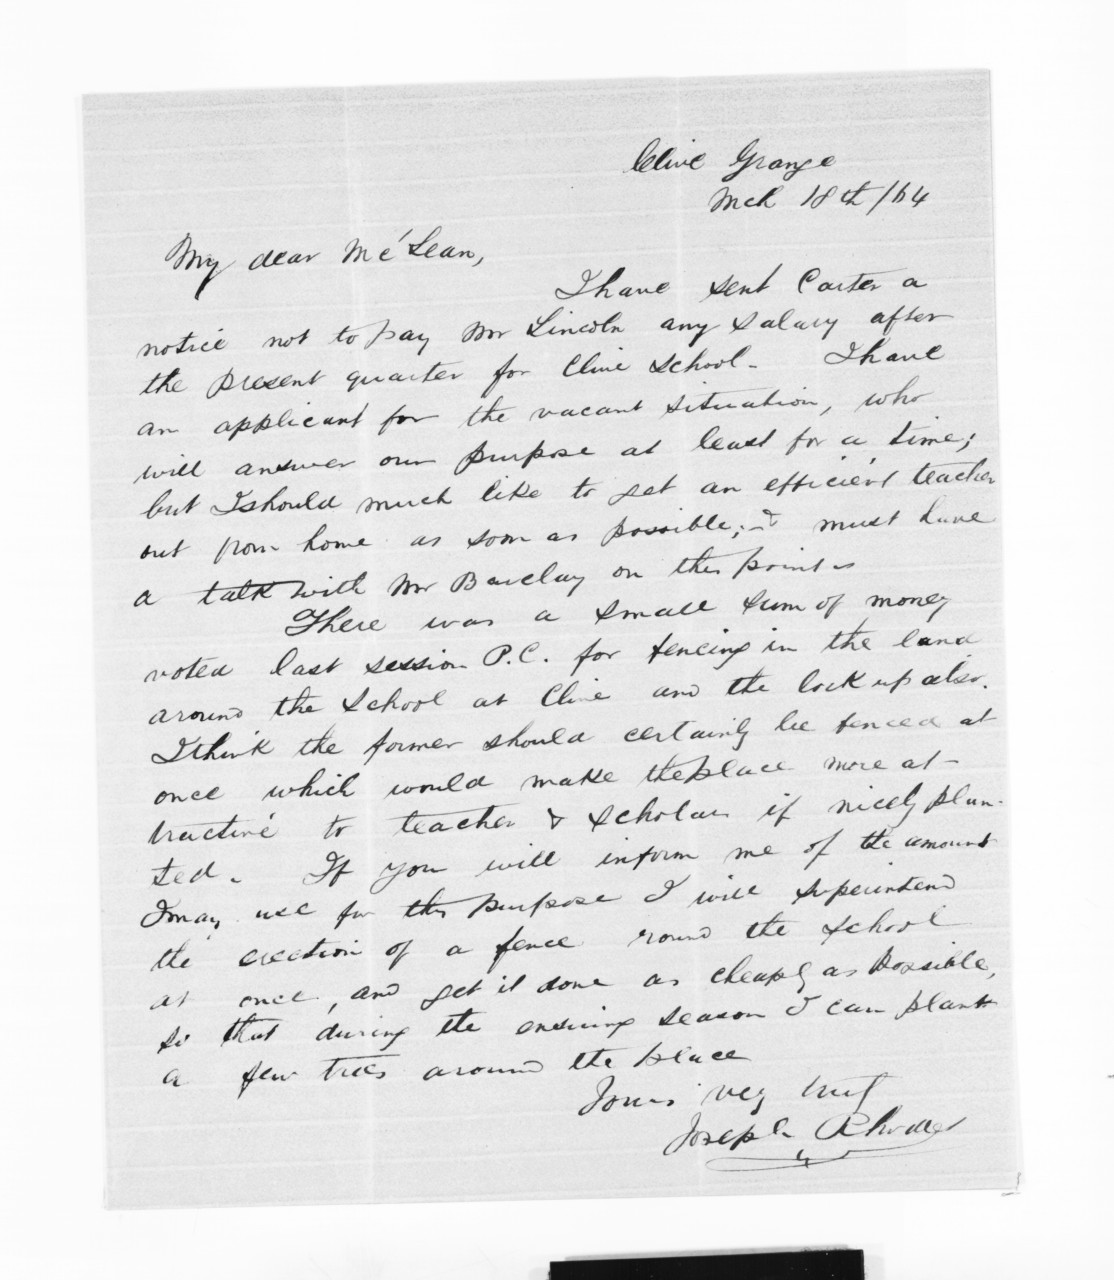 Clive Grange
Mch 18th/64
My dear McLean,
I have sent Carter a
notice not to pay Mr Lincoln any salary after
the present quarter for Clive School. I have
an applicant for the vacant situation, who
will answer our purpose at least for a time;
but I should much like to get an efficient teacher
out from home as soon as possible; & must have
a talk with Mr Barclay on this point.
There was a small sum of money
voted last session P.C. for fencing in the land
around the School at Clive and the lock up also.
I think the former should certainly be fenced at
once which would make the place more at-
tractive to teacher & scholars if nicely plan-
ted. If you will inform me of the amount
I may use for this purpose I will superintend
the erection of a fence round the school
at once, and get it done as cheaply as possible,
so that during the ensuing season I can plant
a few trees around the place
Yours very truly
Joseph Rhodes